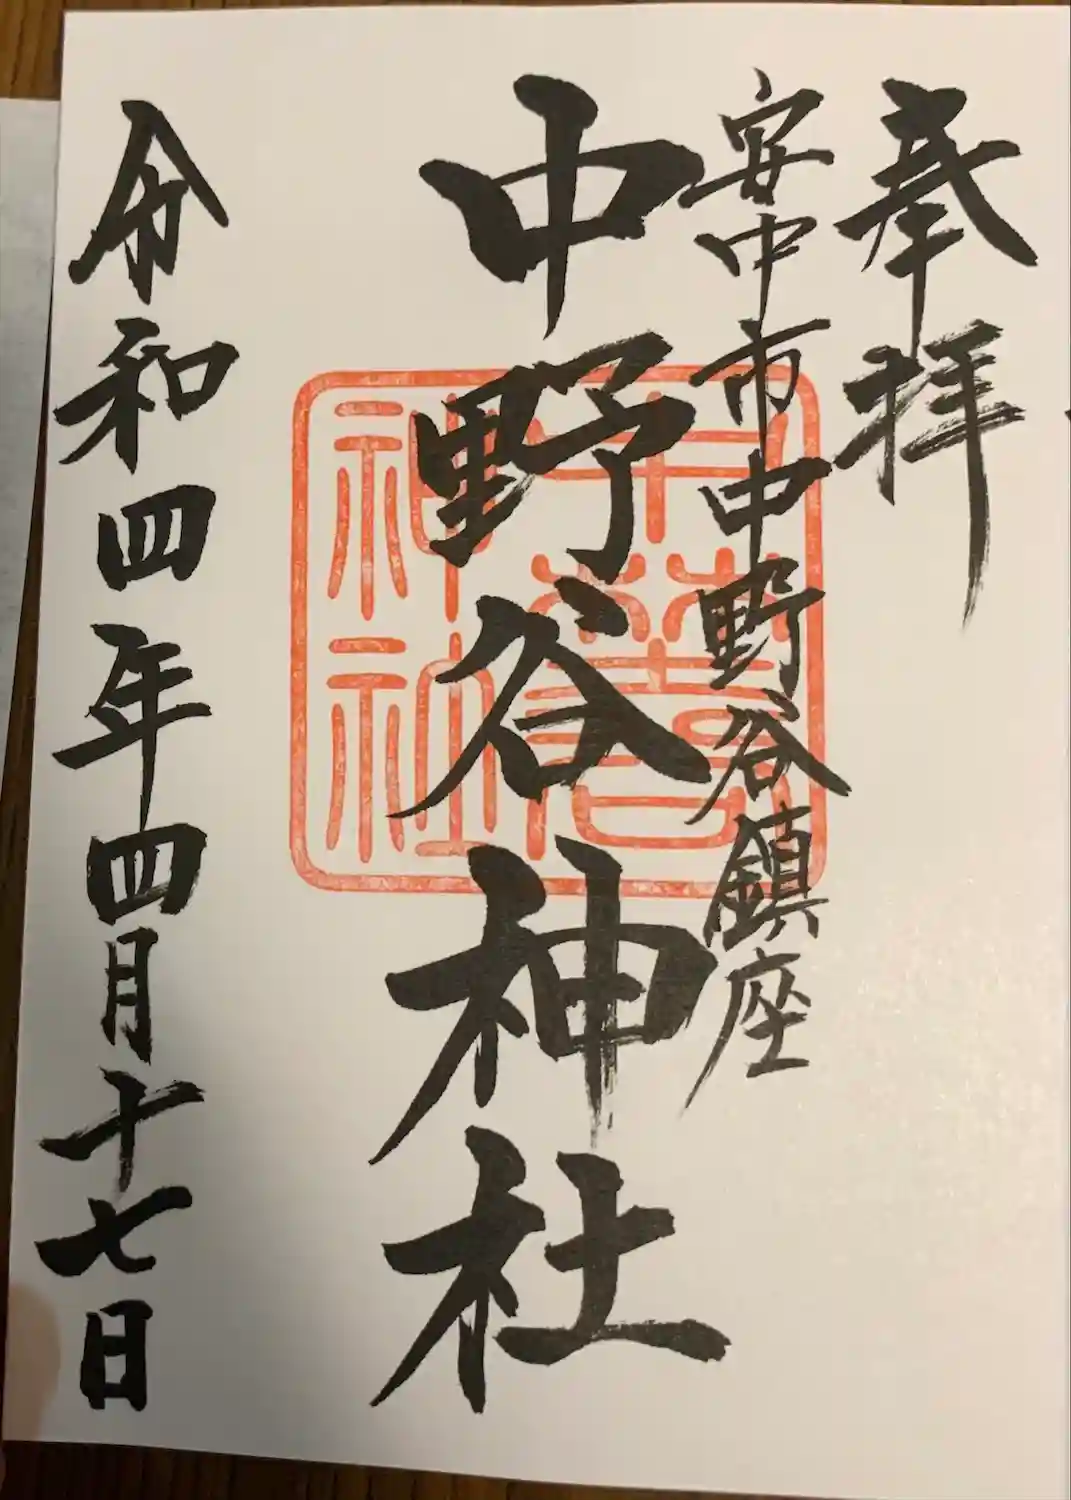 奉拝
安中市中野谷鎮座
中野谷神社
令和四年四月十七日
神社